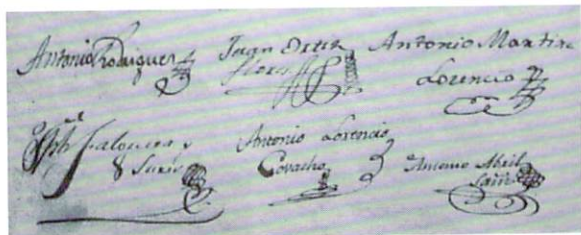 Antonio Rodriguez
Juan Ortiz
flores
Antonio Martine
Lorencio
Jph
Antonio Lorencio
Covacho
Antonio Abril